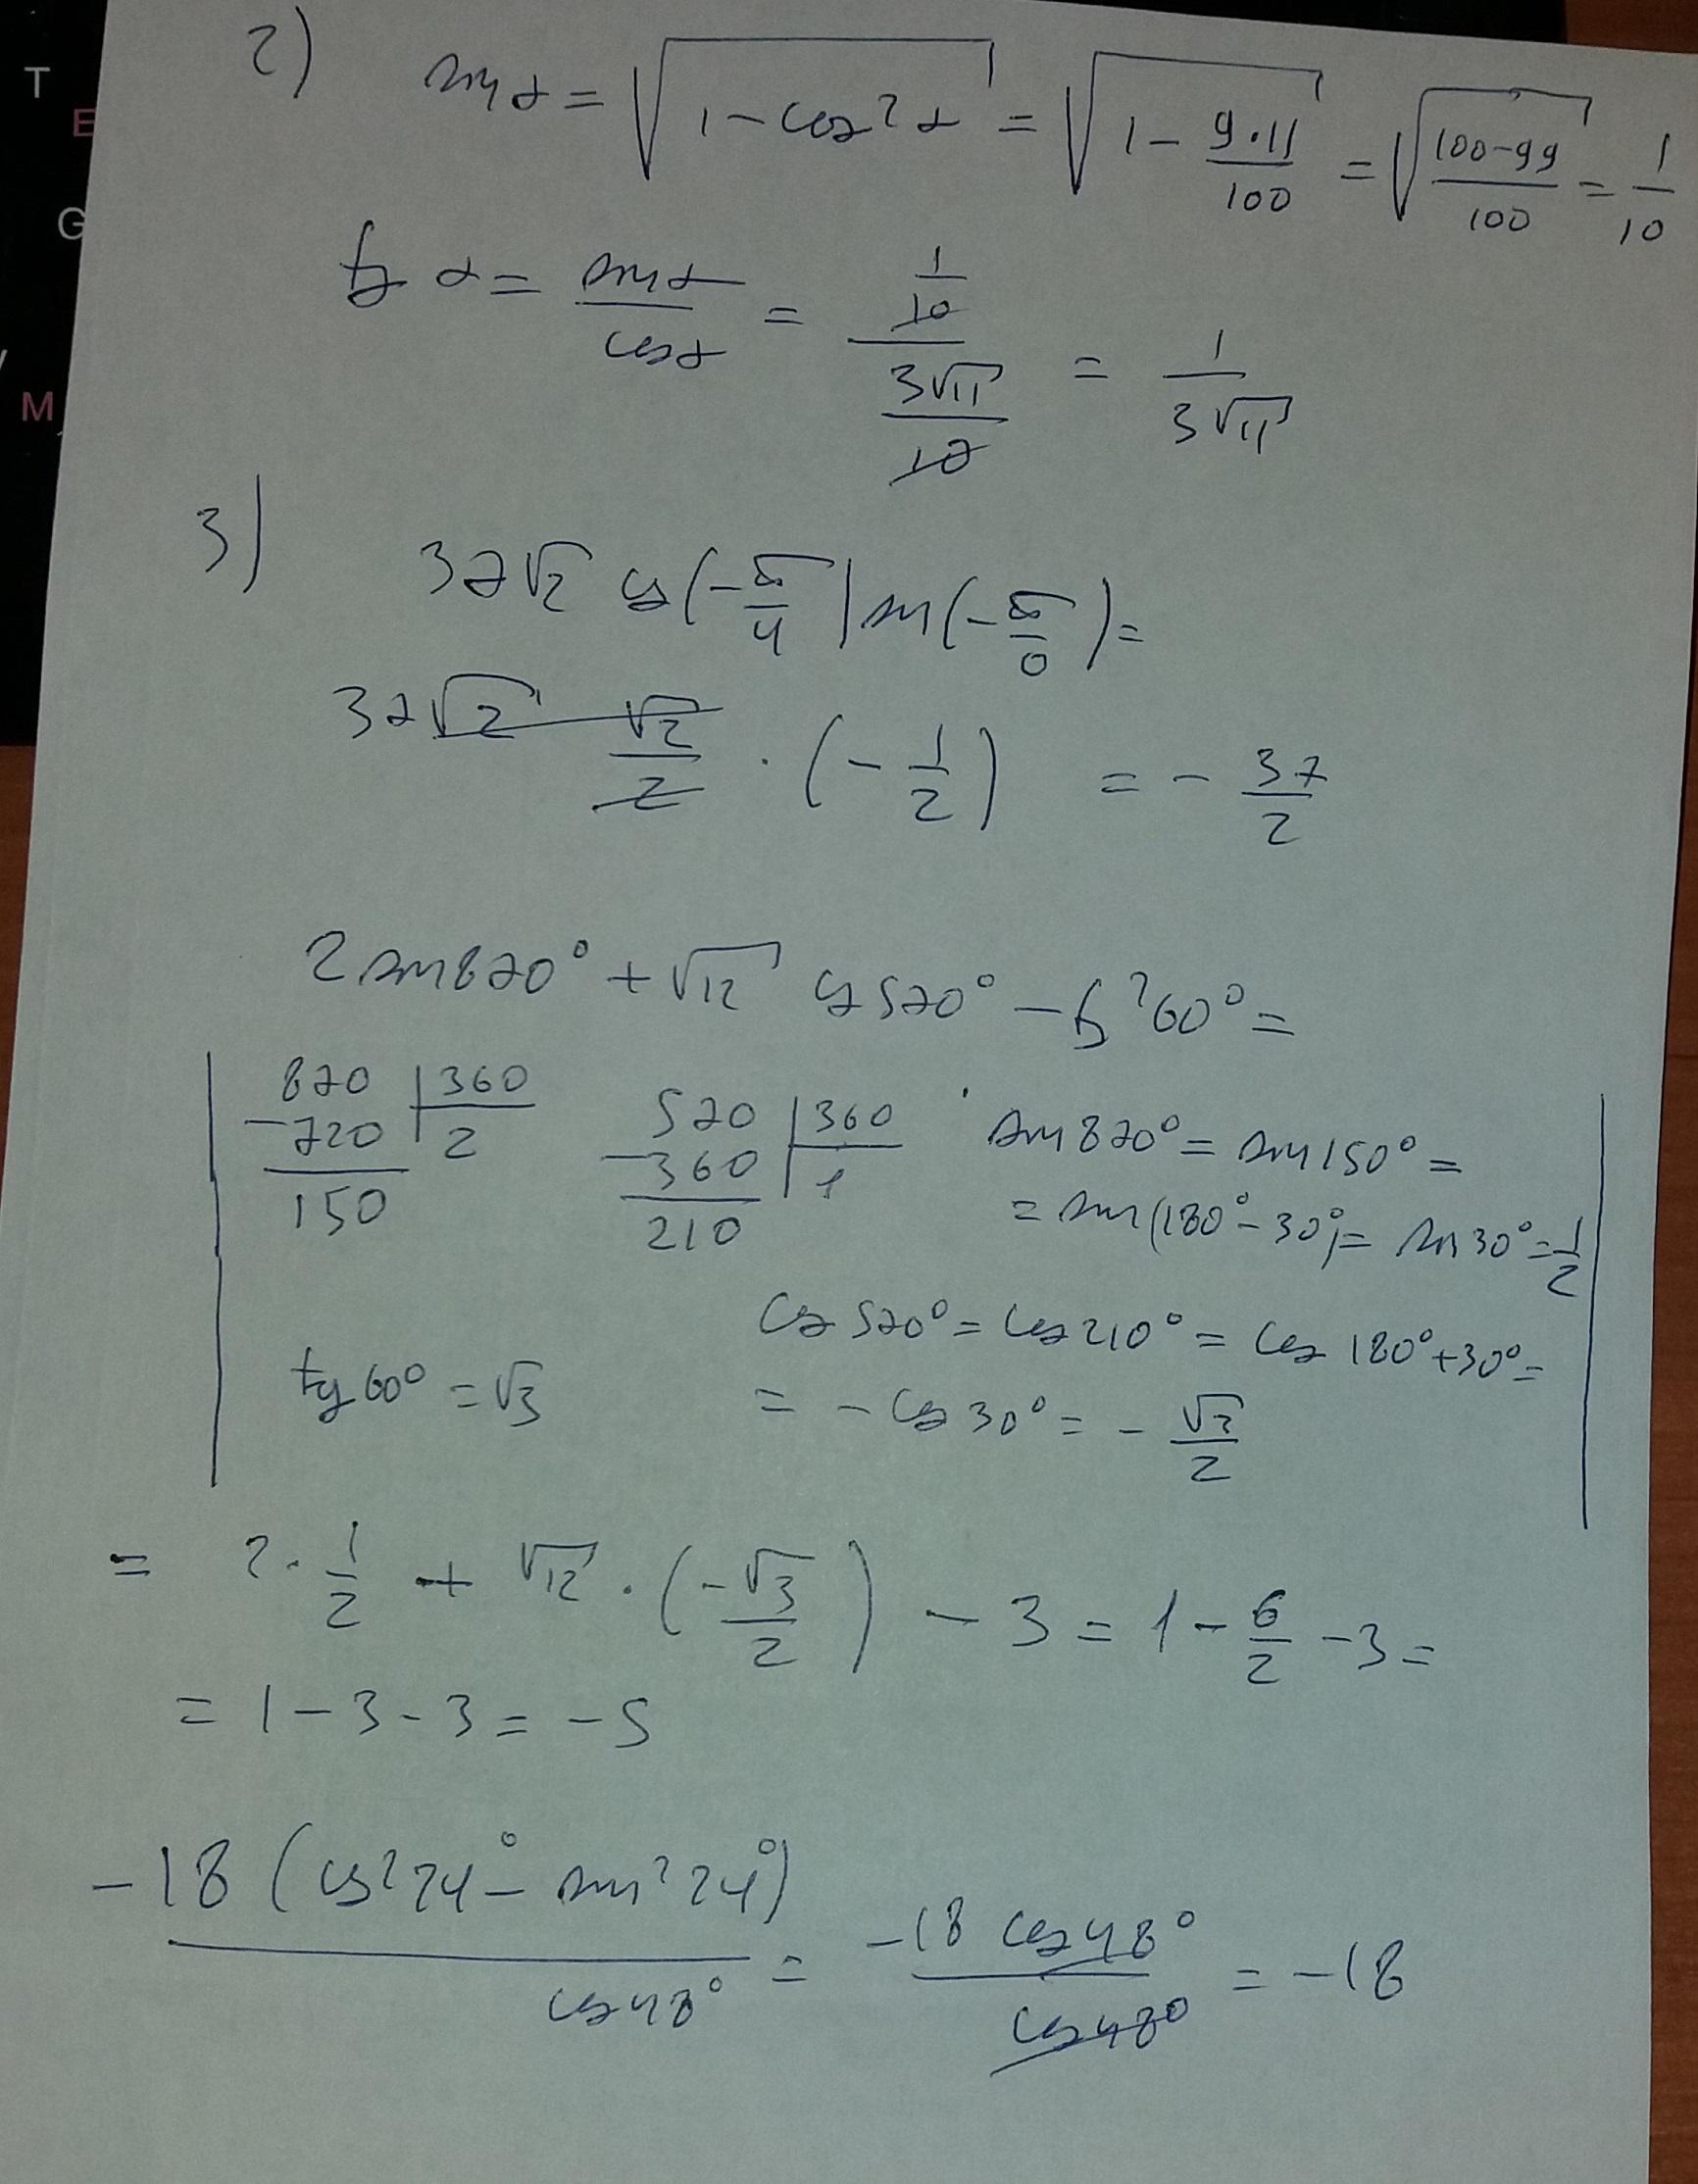 2) sin α = √(1 - cos²α) = √(1 - 9·11/100) = √((100-99)/100) = 1/10
tg α = sin α/cos α = (1/10)/(3√11/10) = 1/(3√11)
3) 37√2 cos(-π/4) sin(-π/6) =
37√2 √2/2 · (-1/2) = - 37/2
2 sin 870° + √12 cos 570° - tg²60° =
870 | 360
-720 | 2
150
570 | 360
-360 | 1
210
sin 870° = sin 150° =
= sin(180° - 30°) = sin 30° = 1/2
cos 570° = cos 210° = cos 180° + 30° =
tg 60° = √3
= - cos 30° = - √3/2
= 2 · 1/2 + √12 · (-√3/2) - 3 = 1 - 6/2 - 3 =
= 1 - 3 - 3 = -5
-18 (cos²24° - sin²24°)/cos 48° = -18 cos 48°/cos 48° = -18
T
E
G
M